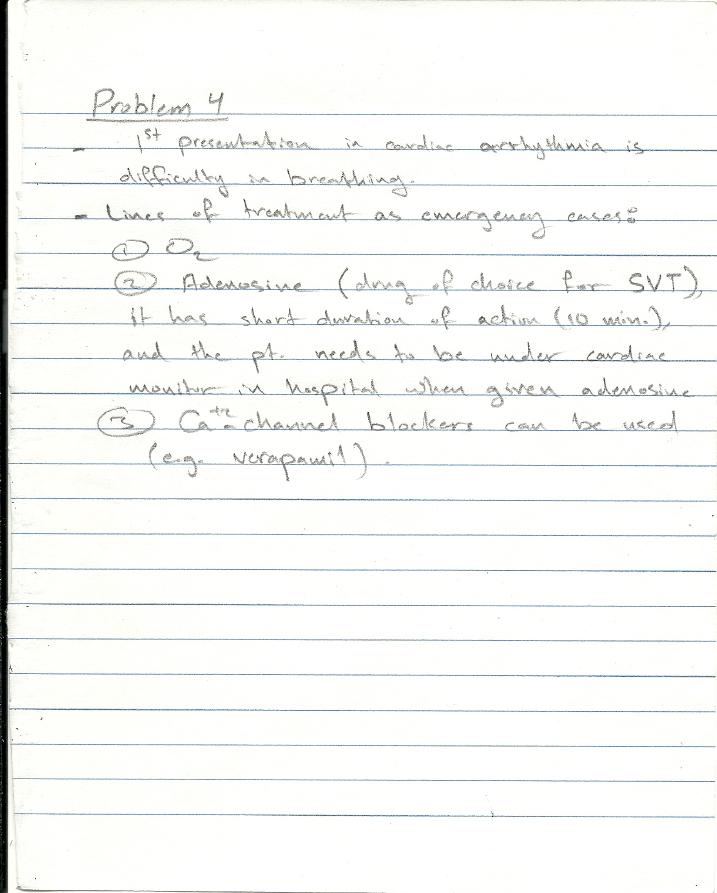 Problem 4
- 1st presentation in cardiac arrhythmia is
difficulty in breathing.
- Lines of treatment as emergency cases:
① O2
② Adenosine (drug of choice for SVT),
it has short duration of action (10 min.),
and the pt. needs to be under cardiac
monitor in hospital when given adenosine
③ Ca+2 - channel blockers can be used
(e.g. verapamil).